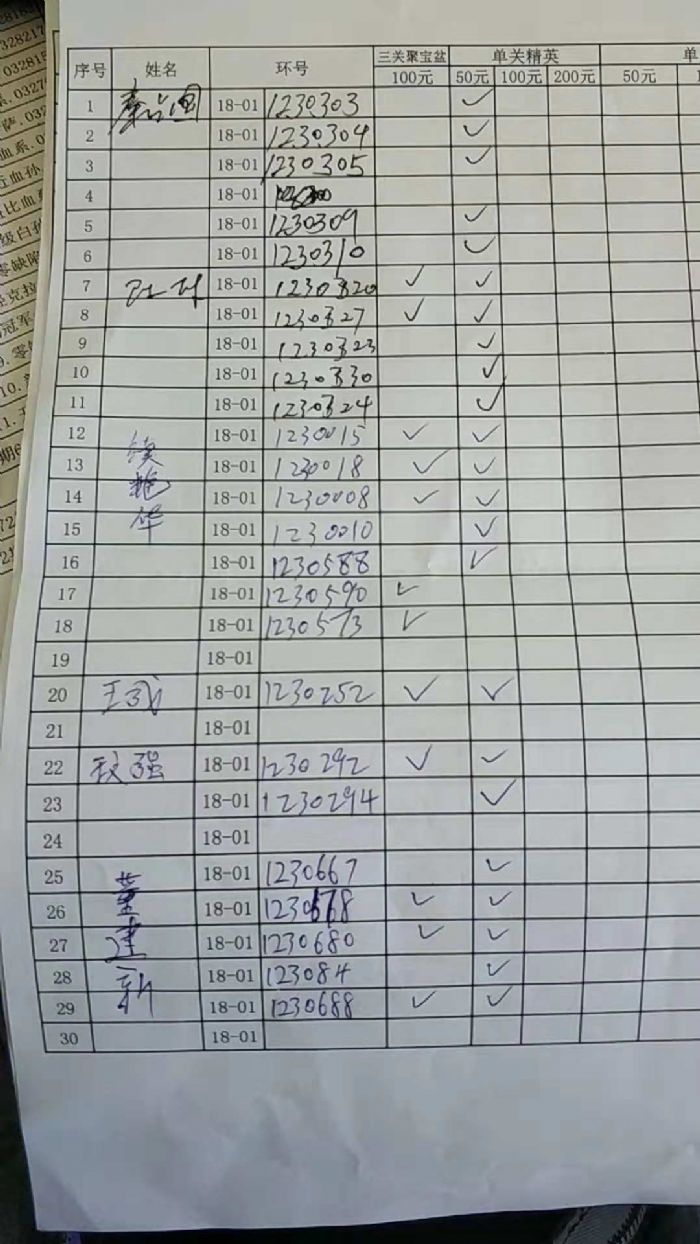 序号 姓名 环号 三关聚宝盆 单关精英 单
100元 50元 100元 200元 50元
1 18-01 1230303 ✓
2 18-01 1230304 ✓
3 18-01 1230305 ✓
4 18-01
5 18-01 1230309 ✓
6 18-01 1230310 ✓
7 18-01 1230320 ✓ ✓
8 18-01 1230327 ✓ ✓
9 18-01 1230323 ✓
10 18-01 1230330 ✓
11 18-01 1230324 ✓
12 18-01 1230015 ✓ ✓
13 18-01 1230018 ✓ ✓
14 艳 18-01 1230008 ✓ ✓
15 华 18-01 1230010 ✓
16 18-01 1230588 ✓
17 18-01 1230590 ✓
18 18-01 1230573 ✓
19 18-01
20 王成 18-01 1230252 ✓ ✓
21 18-01
22 强 18-01 1230292 ✓ ✓
23 18-01 1230294 ✓
24 18-01
25 董 18-01 1230667 ✓
26 18-01 1230678 ✓ ✓
27 建 18-01 1230680 ✓ ✓
28 新 18-01 123084 ✓
29 18-01 1230688 ✓ ✓
30 18-01